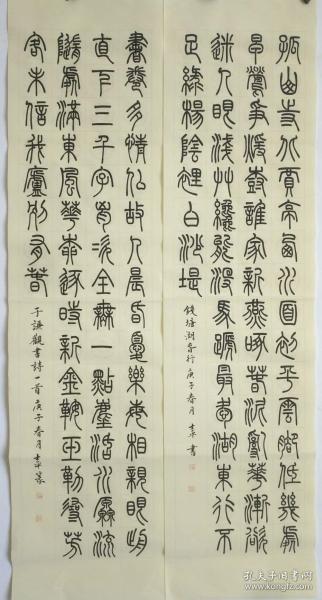 孤山寺北賈亭西水面初平雲腳低幾處
早鶯爭暖樹誰家新燕啄春泥亂華漸欲
迷人眼淺艸纔能沒馬蹏最愛湖東行不
足綠楊陰裡白沙堤
錢塘湖春行 庚子春月 書
書卷多情似故人晨昏憂樂每相親眼前
直下三千字胷次全無一點塵活水原流
隨處滿東風華柳逐時新金鞍玉勒尋芳
客未信我廬別有春
于謙觀書詩一首 庚子春月 篆
孔夫子旧书网